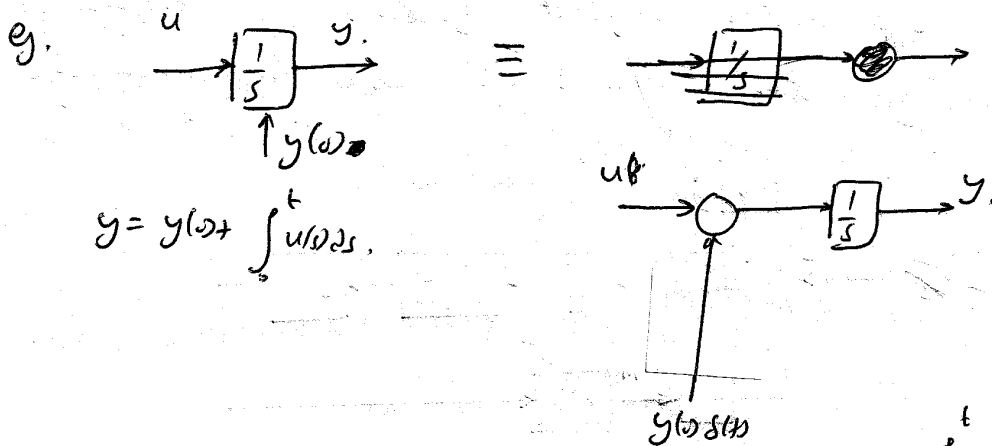 eg.
u
1/s
y.
≡
1/s
y(0)
y = y(0) + ∫₀ᵗ u(s) ds.
u
1/s
y.
y(0) δ(t)
t